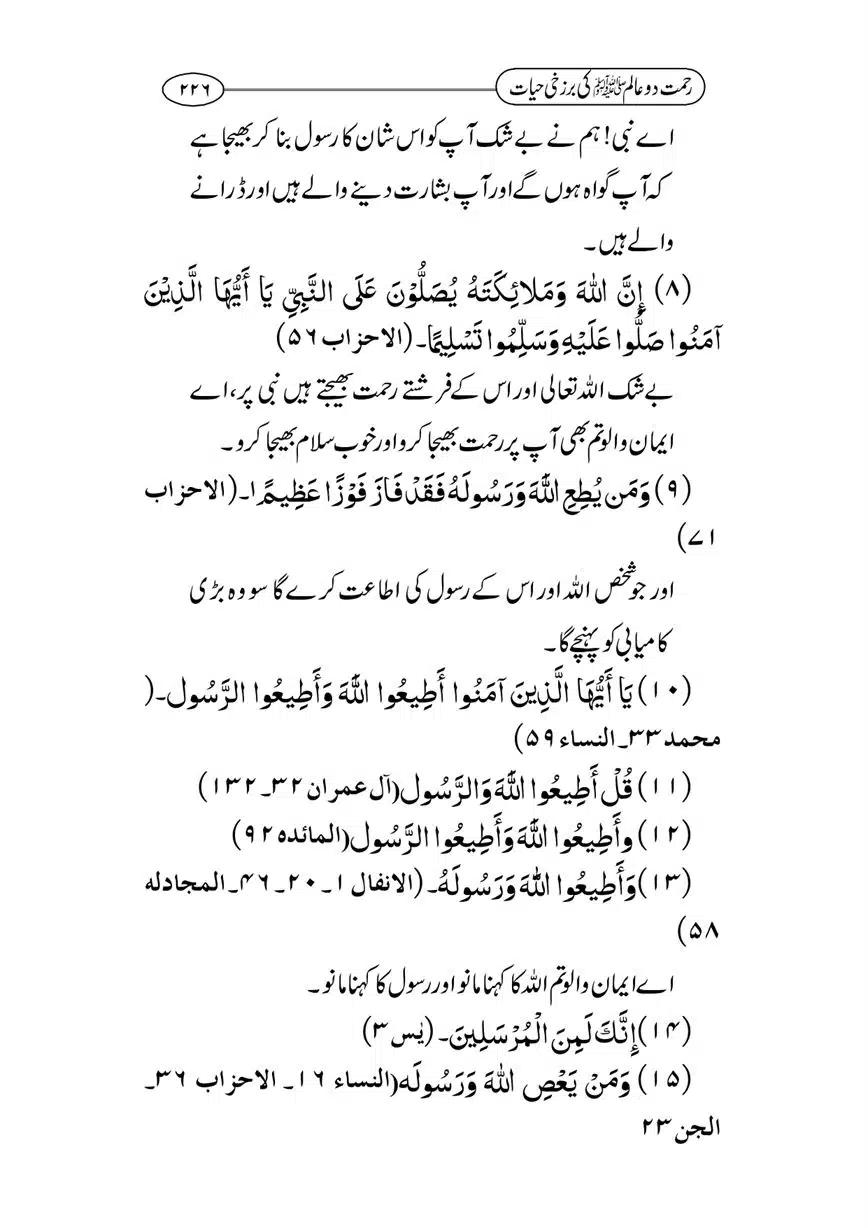 رحمت دو عالم ﷺ کی برزخی حیات ۲۲۶
اے نبی! ہم نے بے شک آپ کو اس شان کا رسول بنا کر بھیجا ہے
کہ آپ گواہ ہوں گے اور آپ بشارت دینے والے ہیں اور ڈرانے
والے ہیں۔
(۸) إِنَّ اللهَ وَمَلائِكَتَهُ يُصَلُّوْنَ عَلَى النَّبِيِّ يَا أَيُّهَا الَّذِيْنَ
آمَنُوا صَلُّوا عَلَيْهِ وَسَلِّمُوا تَسْلِيمًا۔ (الاحزاب ۵۶)
بے شک اللہ تعالی اور اس کے فرشتے رحمت بھیجتے ہیں نبی پر، اے
ایمان والو تم بھی آپ پر رحمت بھیجا کرو اور خوب سلام بھیجا کرو۔
(۹) وَمَن يُطِعِ اللَّهَ وَرَسُولَهُ فَقَدْ فَازَ فَوْزًا عَظِيمًا۔ (الاحزاب
۷۱)
اور جو شخص اللہ اور اس کے رسول کی اطاعت کرے گا سو وہ بڑی
کامیابی کو پہنچے گا۔
(۱۰) يَا أَيُّهَا الَّذِينَ آمَنُوا أَطِيعُوا اللَّهَ وَأَطِيعُوا الرَّسُول۔ (
محمد ۳۳۔ النساء ۵۹)
(۱۱) قُلْ أَطِيعُوا اللَّهَ وَالرَّسُول (آل عمران ۳۲۔ ۱۳۲)
(۱۲) وأَطِيعُوا اللَّهَ وَأَطِيعُوا الرَّسُول (المائدہ ۹۲)
(۱۳) وَأَطِيعُوا اللهَ وَرَسُولَهُ۔ (الانفال ۱۔ ۲۰۔ ۴۶۔ المجادلہ
۵۸)
اے ایمان والو تم اللہ کا کہنا مانو اور رسول کا کہنا مانو۔
(۱۴) إِنَّكَ لَمِنَ الْمُرْسَلِينَ۔ (یٰس ۳)
(۱۵) وَمَنْ يَعْصِ اللهَ وَرَسُولَه (النساء ۱۶۔ الاحزاب ۳۶۔
الجن ۲۳